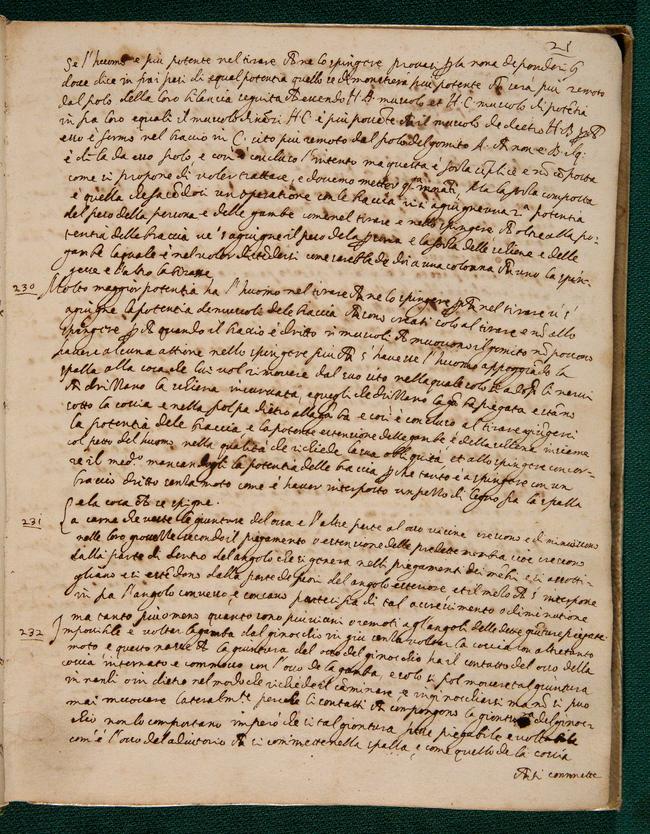 21
Se l'huomo è più potente nel tirare che ne lo spingere provasi per la nona de ponderibus
dove dice in fra i pesi di equal potentia quello si dimostrerà più potente che sarà più remoto
dal polo della loro bilancia seguita che essendo H B muscolo et H C muscolo di potetia
in fra loro equali il muscolo di H C è più potente che il muscolo de dietro H B perche
esso è fermo nel braccio in C sito più remoto dal polo del gomito A che non è B
è di la da esso polo, e così è concluso l'intento ma questa è forza simplice e non composta
come si propone di voler trattare, e dovemo metter Ma la forza composta
è quella che facendosi un operatione con le braccia vi si aggiugne una 2ª potentia
del peso della persona e delle gambe come nel tirare e nello spingere che oltre alla po-
tentia delle braccia vi s'aggiugne il peso della persona e la forza delle schiene e delle
gambe la quale è nel voler distendersi come sarebbe de dui a una colonna che uno la spin-
gesse e l'altro la tirasse
230 Molto maggior potentia ha l'huomo nel tirare che ne lo spingere perche nel tirare vi s'
agiugne la potentia de muscoli dele braccia che sono creati solo al tirare e nō allo
spingere perche quando il bracio è dritto i muscoli che muovono il gomito nō possono
havere alcuna attione nello spingere più che s' havesse l'huomo appoggiado la
spalla alla cosa che lui vol rimovere dal suo sito nella quale solo s'adopra li nervi
che drizzano la schiena incurvata, e quegli che drizzano la gāba piegata e stāno
sotto la coscia e nella polpa dietro alla gāba e così è concluso al tirare giugnersi
la potentia dele braccia e la potente estensione delle gambe e della schiena insieme
col petto del huomo nella qualità che richiede la sua obliquità, et allo spingere concor-
re il med.º mancandogli la potentia delle braccia perche tanto è a spingere con un
braccio dritto senza moto come è haver interposto un pezzo di legno fra la spalla
e la cosa che si spigne.
231 La carne che veste le giunture del osso e l'altre parte al osso vicine crescono e diminuiscono
nelle loro grossezze secondo il piegamento o estensione delle predette membra cioè crescono
dalla parte di dentro del angolo che si genera nelli piegamenti dei mēbri e si assotti-
gliano e si estēdono dalla parte de fori del angolo esteriore, et il mezo che s' interpone
in fra l'angolo convesso, e concavo partecipa di tal accrescimento o diminutione
ma tanto più o meno quanto sono più vicini o remoti agl'angoli delle dette giūture piegate
232 Impossibile è voltar la gamba dal ginocchio in giu senza voltar la coscia con altretanto
moto e questo nasce che la giuntura del osso del ginocchio ha il contatto del osso della
coscia internato e commesso con l'osso de la gamba, e solo si pol movere tal giuntura
in nanti o in dietro nel modo che richiede il caminare, e inginocchiarsi ma nō si può
mai muovere lateralmte perche li contatti che compongono la giontura del ginoc-
chio non lo comportano imperò che si tal giontura fusse piegabile e voltabile
com'è l'osso del adiutorio che si commette nella spalla, e come quello de la coscia
che si commette